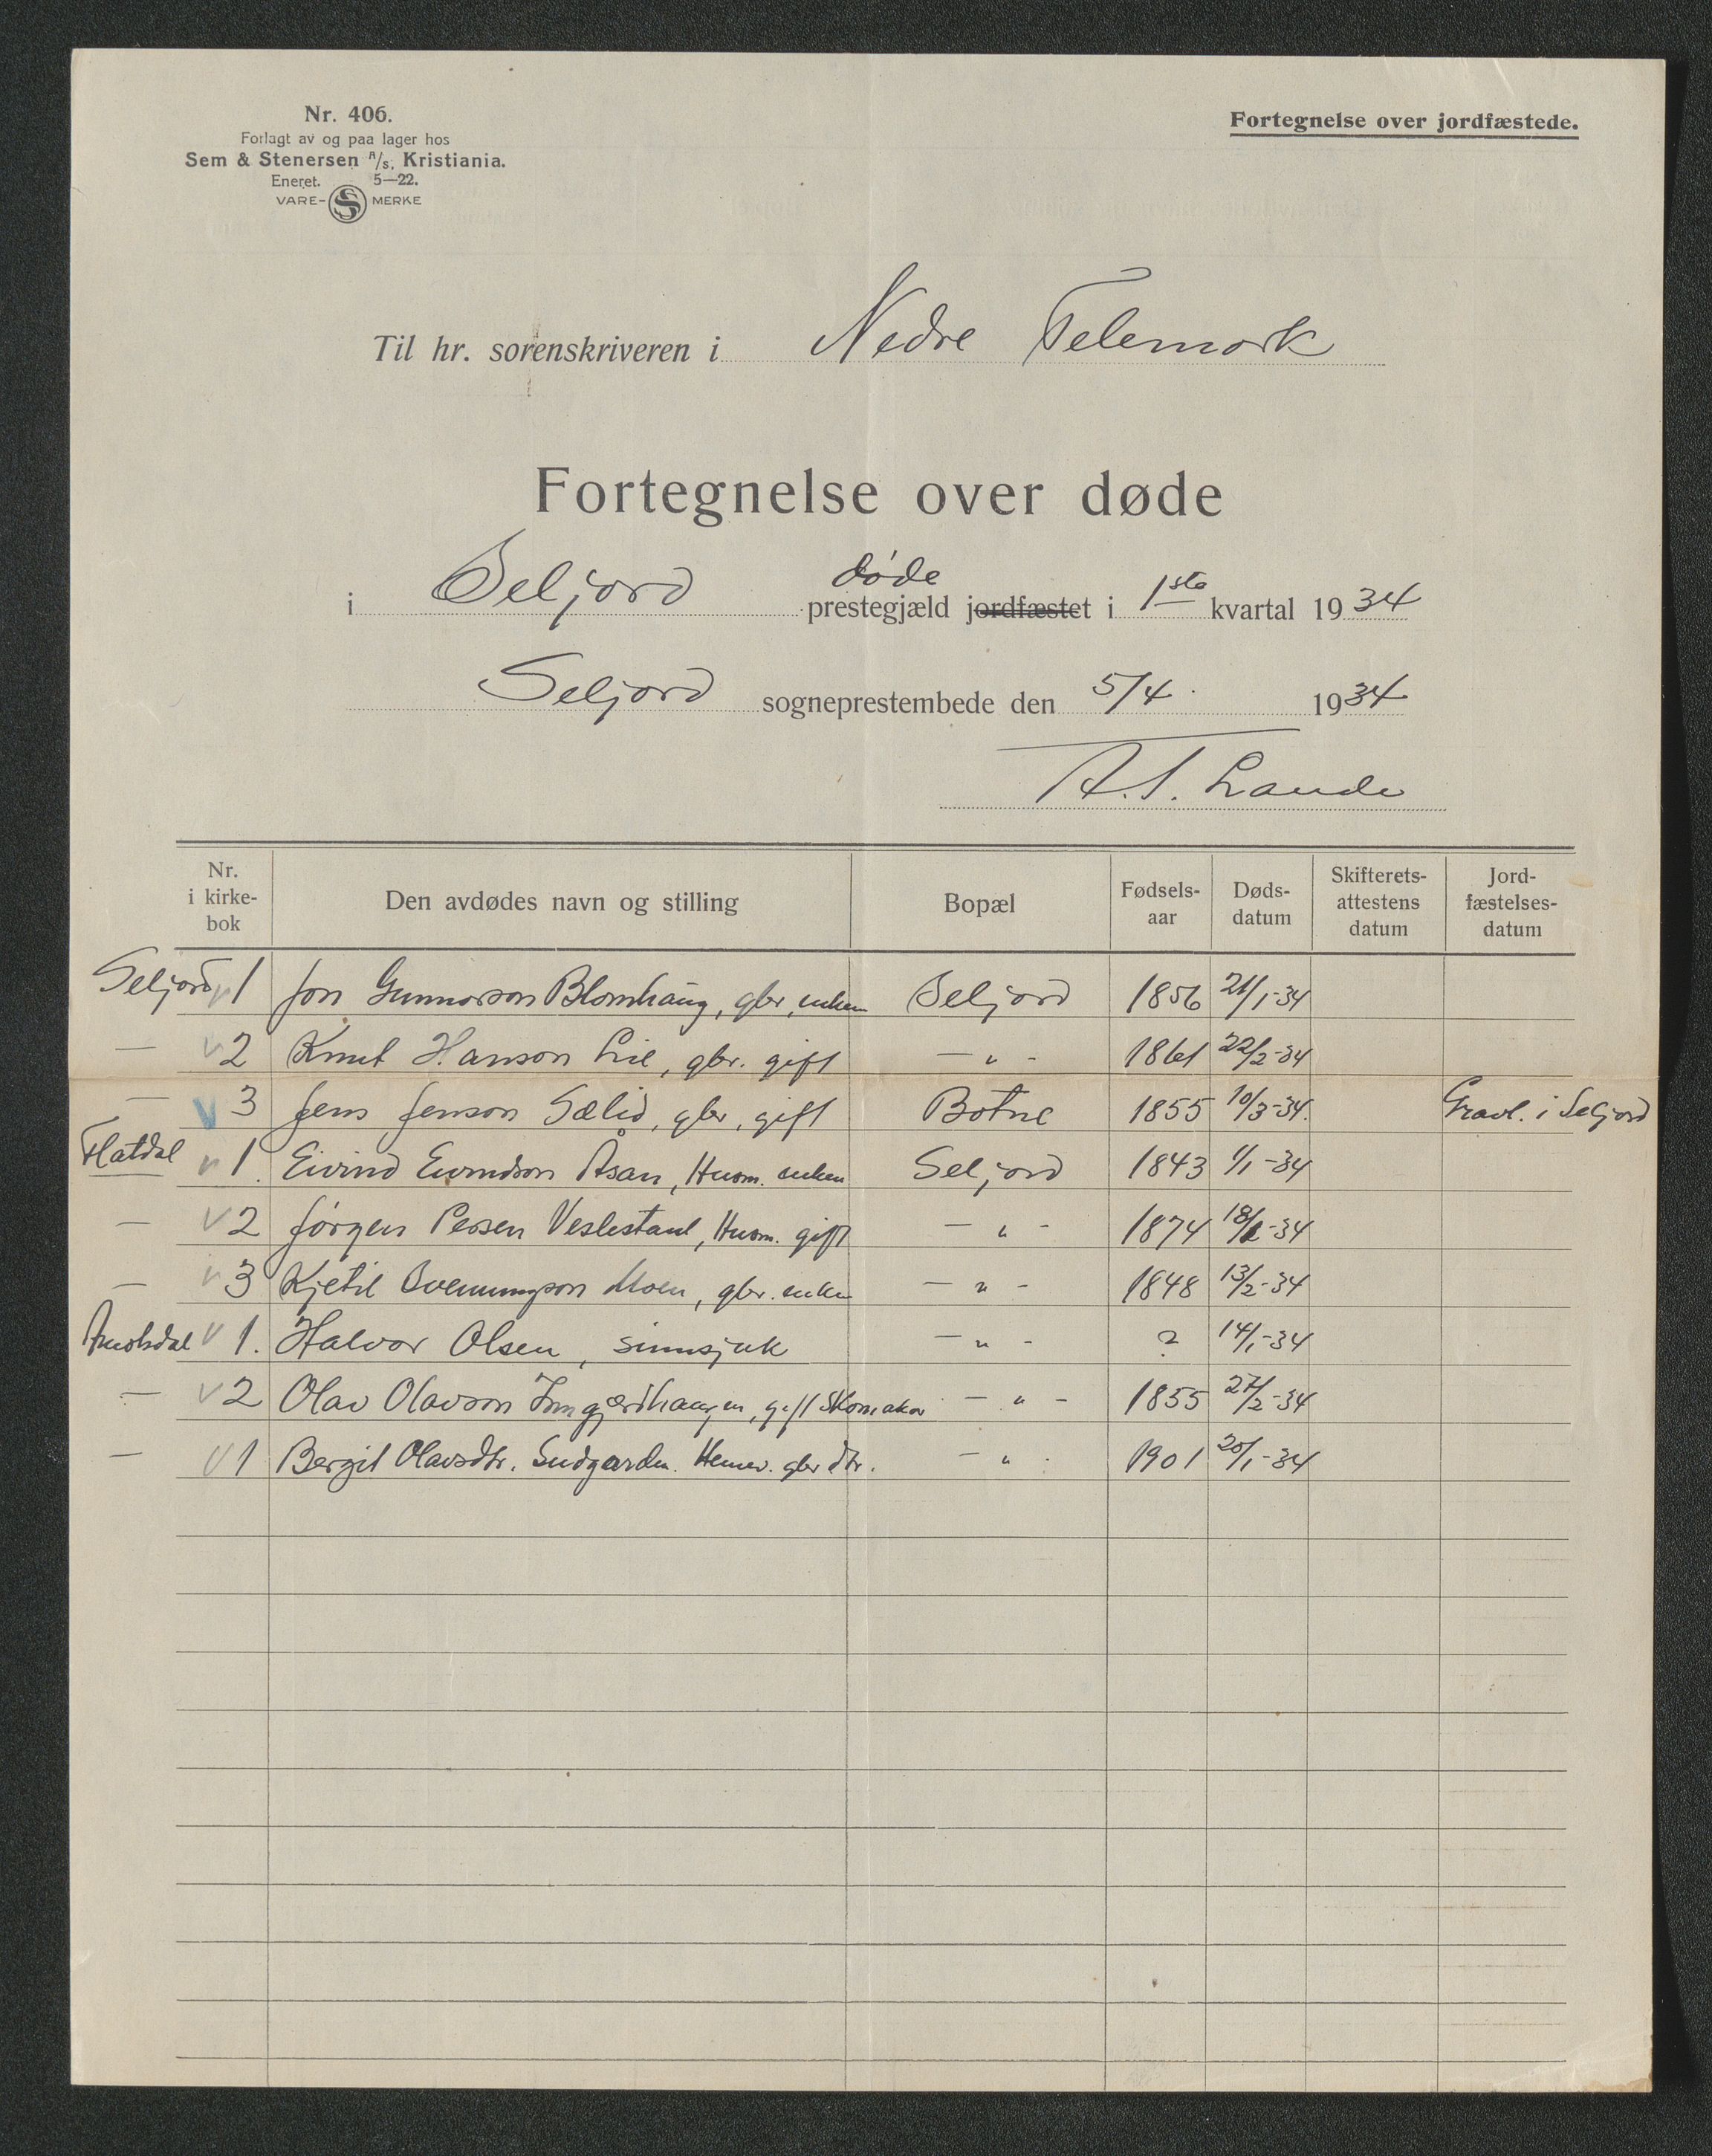 Nr. 406.
Forlagt av og paa lager hos
Sem & Stenersen A/s, Kristiania.
Eneret. 5—22.
VARE- S MERKE
Fortegnelse over jordfæstede.
Til hr. sorenskriveren i Nedre Telemork
Fortegnelse over døde
døde
i Seljord prestegjæld jordfæstet i 1ste kvartal 1934
Seljord sogneprestembede den 5/4. 1934
A. S. Lande
Nr. i kirke-bok Den avdødes navn og stilling Bopæl Fødsels-aar Døds-datum Skifterets-attestens datum Jord-fæstelses-datum
Seljord v 1 Jon Gunnarson Blomhaug, gbr, enkem Seljord 1856 21/1-34
— v 2 Knut Hanson Lie, gbr. gift — " - 1861 22/2-34
— v 3 Jens Jenson Sælid, gbr, gift Botne 1855 10/3-34. Gravl. i Seljord
Flatdal v 1. Eivind Eivindson Åsan, Husm. enkem Seljord 1843 1/1-34
— v 2 Jørgen Persen Veslestaul, Husm. gift — " - 1874 18/2-34
— v 3 Kjetil Svenumgson Moen, gbr. enkem — " - 1848 13/2-34
Åmotsdal v 1. Halvor Olsen, sinnsjuk — " - ? 14/1-34
— v 2 Olav Olavson gift Skomakar — " - 1855 27/2-34
— v 1 Bergit Olavsdtr. Sudgarden. gbr dtr. — " - 1901 20/1-34